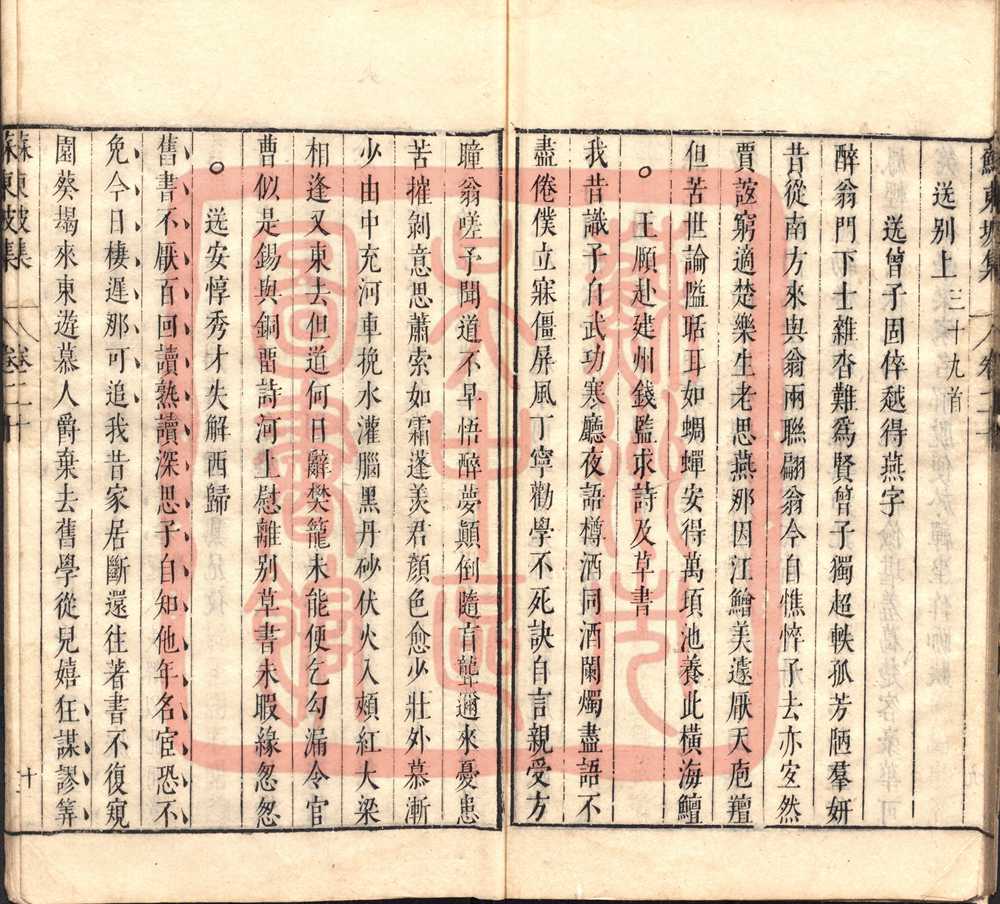 蘇東坡集 卷二十
送別上 三十九首
送曾子固倅越得燕字
醉翁門下士雜沓難爲賢曾子獨超軼孤芳陋羣妍
昔從南方來與翁兩聯翩翁今自憔悴子去亦宜然
賈誼窮適楚樂生老思燕那因江鱠美遽厭天庖羶
但苦世論隘聒耳如蜩蟬安得萬頃池養此橫海鱣
王頤赴建州錢監求詩及草書
我昔識子自武功寒廳夜語樽酒同酒闌燭盡語不
盡倦僕立寐僵屏風丁寧勸學不死訣自言親受方
瞳翁嗟予聞道不早悟醉夢顛倒隨盲聾邇來憂患
苦摧剝意思蕭索如霜蓬羨君顔色愈少壯外慕漸
少由中充河車挽水灌腦黑丹砂伏火入頰紅大梁
相逢又東去但道何日辭樊籠未能便乞勾漏令官
曹似是錫與銅畱詩河上慰離別草書未暇緣怱怱
送安惇秀才失解西歸
舊書不厭百回讀熟讀深思子自知他年名宦恐不
免今日棲遲那可追我昔家居斷還往著書不復窺
園葵朅來東遊慕人爵棄去舊學從兒嬉狂謀謬筭
蘇東坡集 卷二十 十